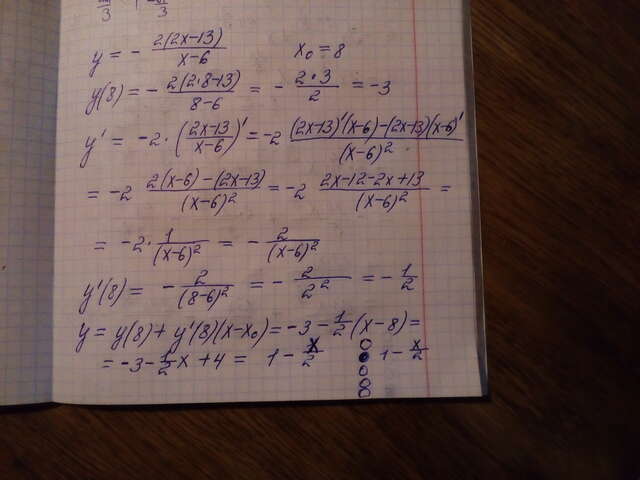 3 3
y = - 2(2x-13)/(x-6) x₀ = 8
y(8) = - 2(2·8-13)/(8-6) = - 2·3/2 = -3
y' = -2·((2x-13)/(x-6))' = -2 ((2x-13)'(x-6)-(2x-13)(x-6)')/(x-6)²
= -2 (2(x-6)-(2x-13))/(x-6)² = -2 (2x-12-2x+13)/(x-6)² =
= -2· 1/(x-6)² = - 2/(x-6)²
y'(8) = - 2/(8-6)² = - 2/2² = - 1/2
y = y(8) + y'(8)(x-x₀) = -3 - 1/2(x-8) =
= -3 - 1/2 x + 4 = 1 - x/2 1 - x/2